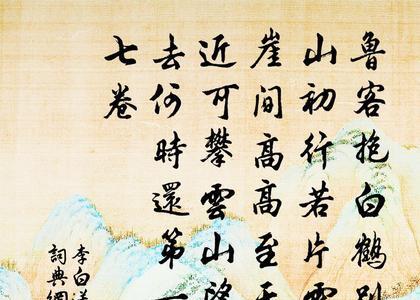 魯客抱白鶴別
山初行若片雲
崖間高高至天
近可攀雲山隔
去何時還第一
七卷
李白送
詞典網